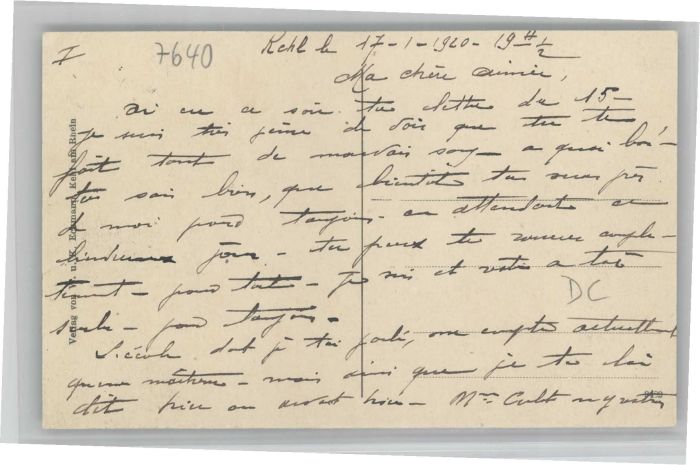 I 7640 Kehl le 17-1-1920- 19 H 1/2
Ma chère aimée,
ai eu ce soir ta lettre du 15-
je suis très peiné de voir que tu te
fait tant de mauvais sang - a quoi bon -
tu sais bien, que bientôt tu seras près
de moi pour toujours - en attendant ce
jour - tu peux te
- pour toute - je suis et reste a toi
DC
seule - pour toujours -
L'école dont je t'ai parlé, ne compte actuellement
qu'une - mais ainsi que je te l'ai
dit hier ou avant hier - Mme
Verlag von u. W. Eckmann, Kehl am Rhein